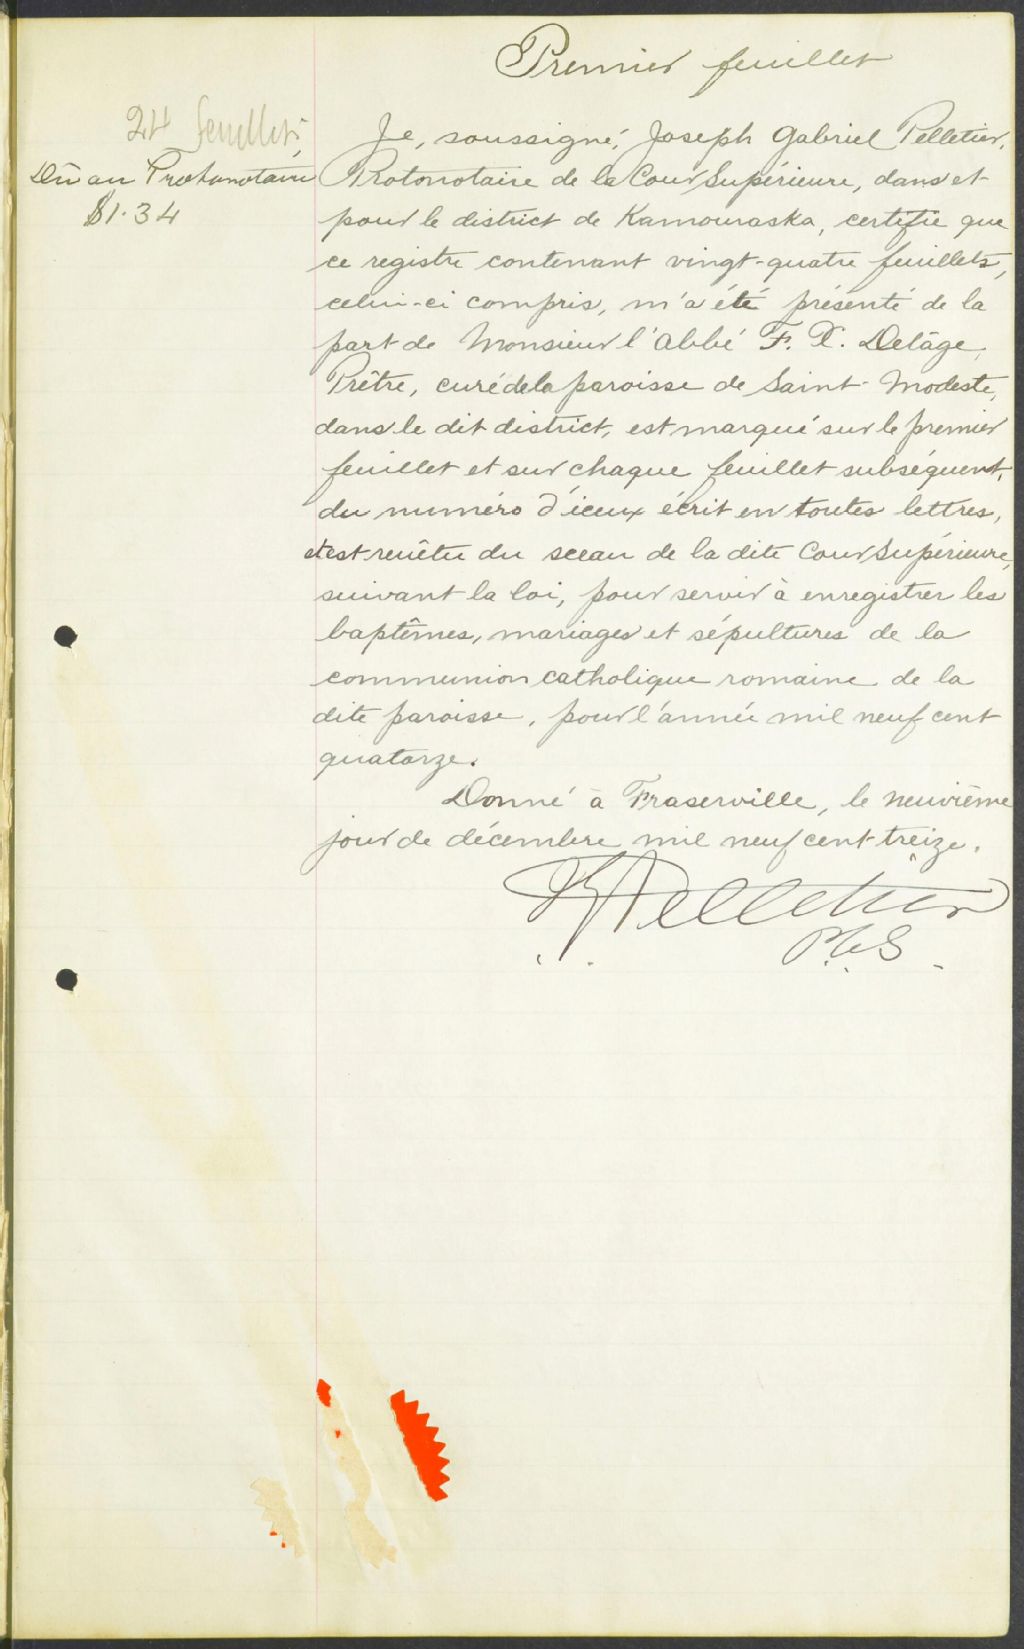 Premier feuillet
24 feuillets
Dû au Protonotaire
$1.34
Je, soussigné, Joseph Gabriel Pelletier,
Protonotaire de la Cour Supérieure, dans et
pour le district de Kamouraska, certifie que
ce registre contenant vingt-quatre feuillets,
celui-ci compris, m'a été présenté de la
part de Monsieur l'abbé F. X. Delâge,
Prêtre, curé de la paroisse de Saint-Modeste,
dans le dit district, est marqué sur le premier
feuillet et sur chaque feuillet subséquent,
du numéro d'iceux écrit en toutes lettres,
et est revêtu du sceau de la dite Cour Supérieure,
suivant la loi, pour servir à enregistrer les
baptêmes, mariages et sépultures de la
communion catholique romaine de la
dite paroisse, pour l'année mil neuf cent
quatorze.
Donné à Fraserville, le neuvième
jour de décembre mil neuf cent treize.
JG Pelletier
P.C.S.